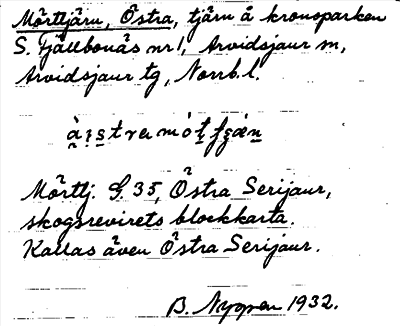 Mörttjärn, Östra, tjärn å kronoparken
S. Fjällbonäs nr 1, Arvidsjaur sn,
Arvidsjaur tg, Norrb. l.
Mörttj. G. 35, Östra Serijaur,
skogsrevirets blockkarta.
Kallas även Östra Serijaur.
B. Nygren 1932.